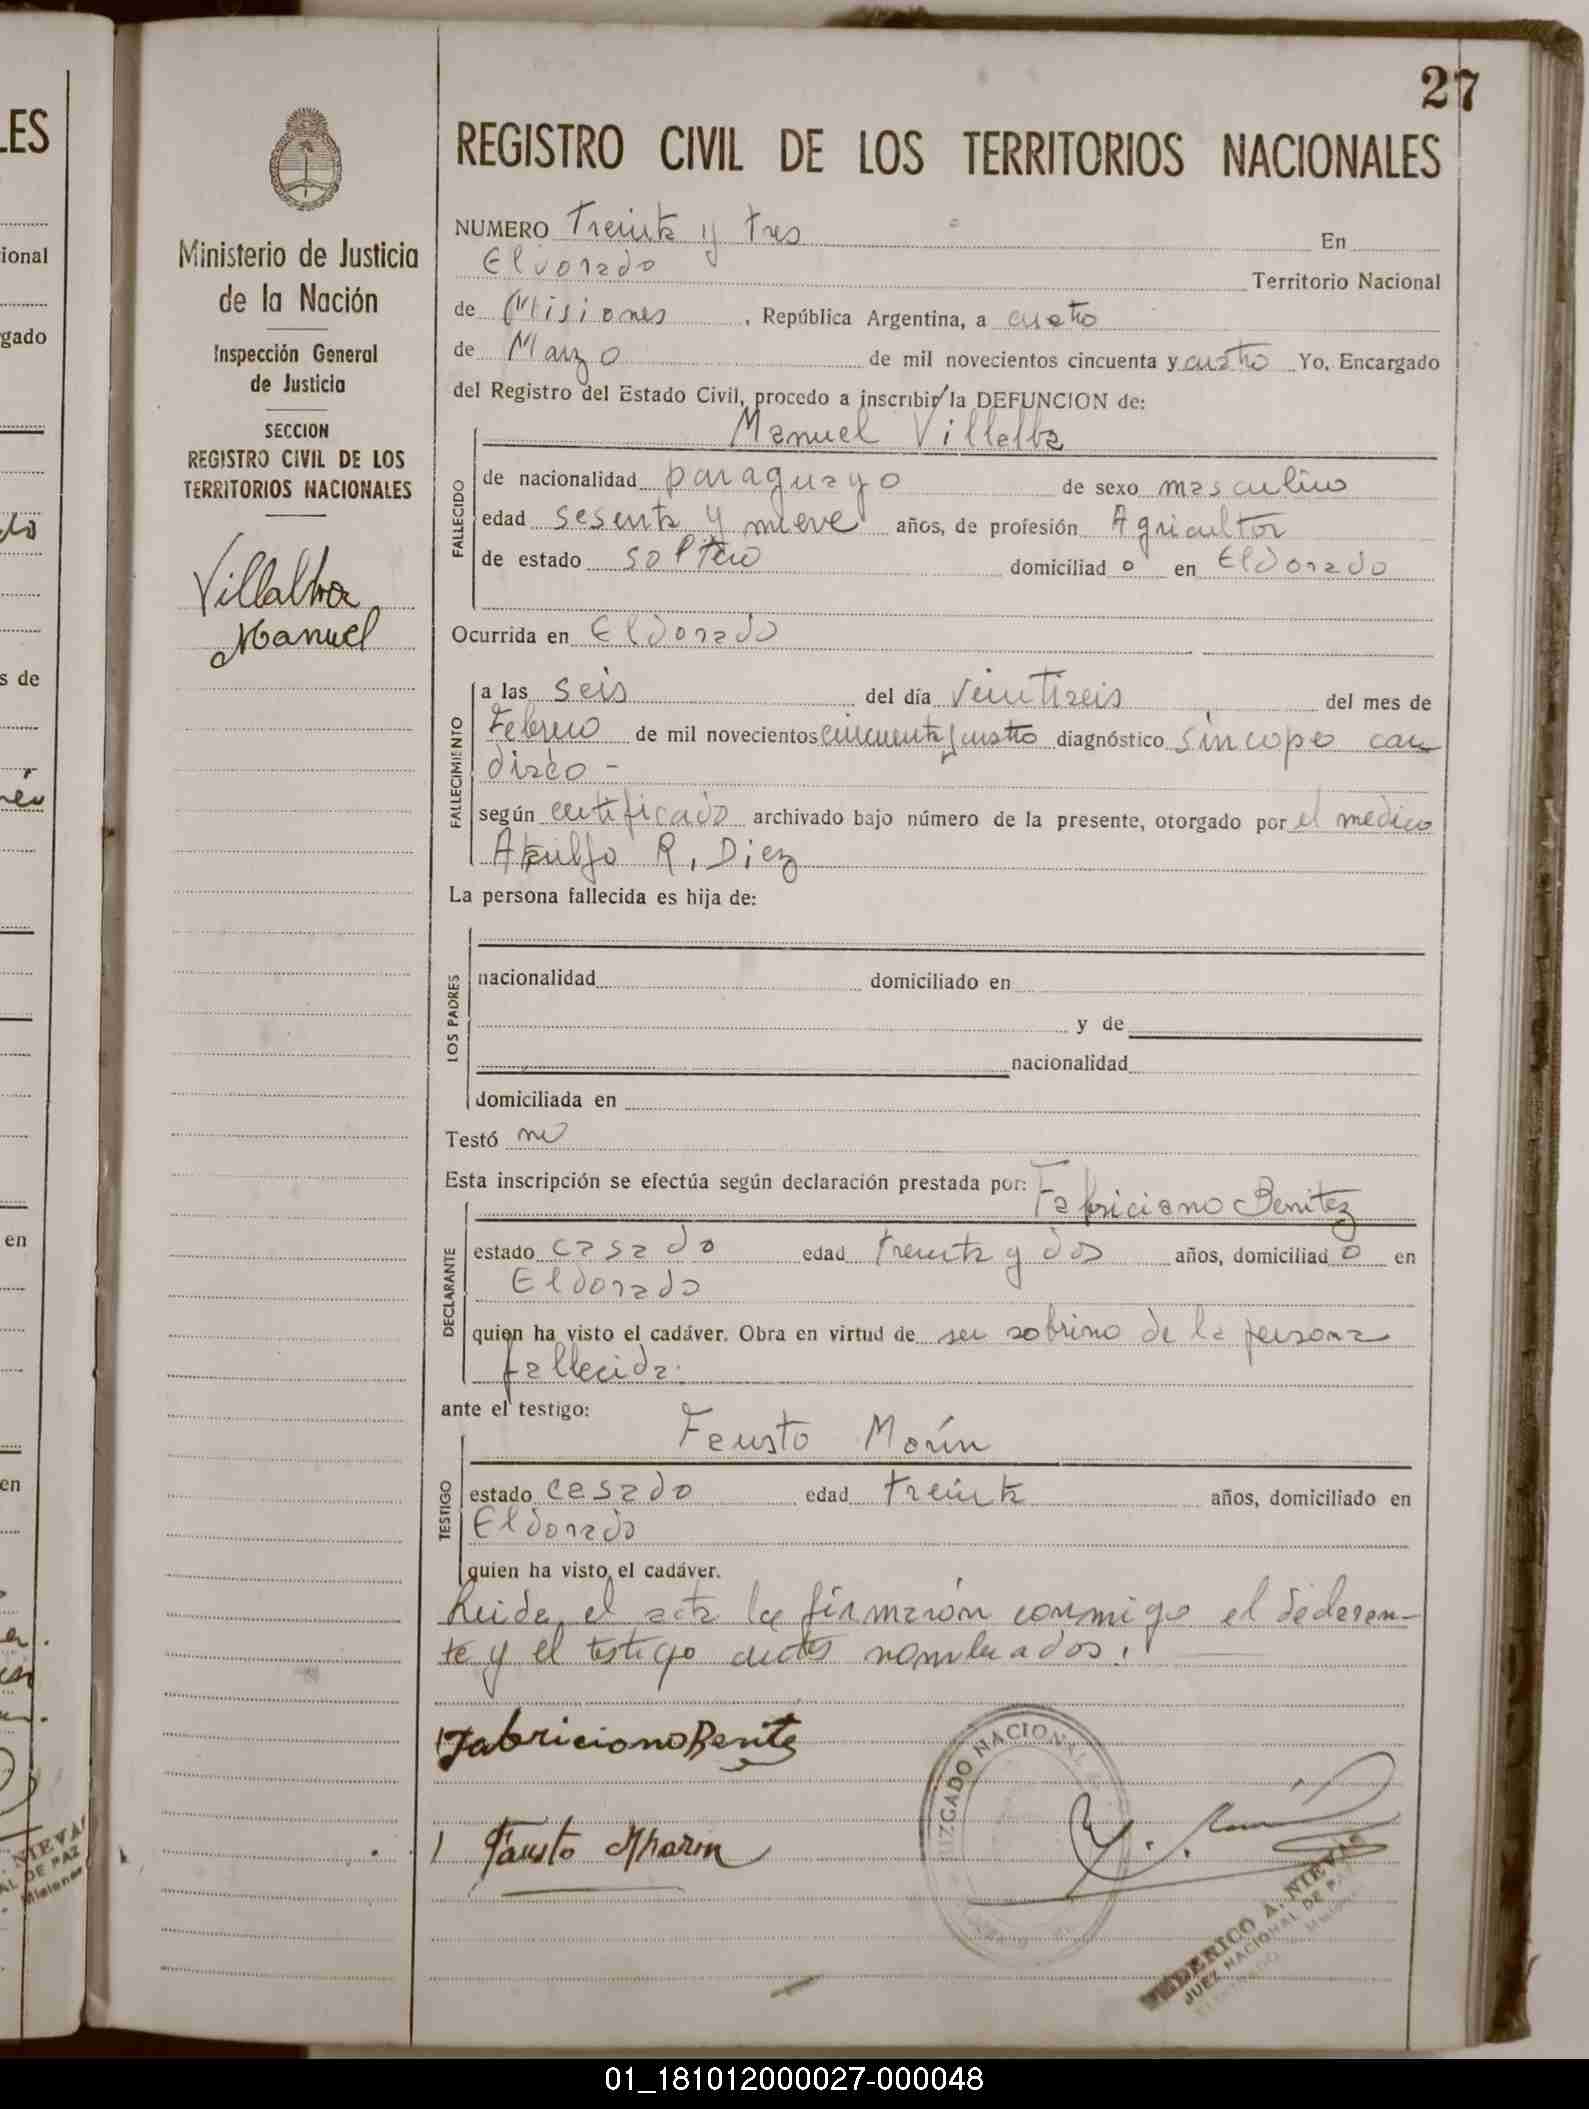 27
REGISTRO CIVIL DE LOS TERRITORIOS NACIONALES
Ministerio de Justicia
de la Nación
Inspección General
de Justicia
SECCION
REGISTRO CIVIL DE LOS
TERRITORIOS NACIONALES
Villalba
Manuel
NUMERO Treinta y tres En
Eldorado Territorio Nacional
de Misiones, República Argentina, a cuatro
de Marzo de mil novecientos cincuenta y cuatro Yo, Encargado
del Registro del Estado Civil, procedo a inscribir la DEFUNCION de:
Manuel Villalba
FALLECIDO
de nacionalidad paraguayo de sexo masculino
edad sesenta y nueve años, de profesión Agricultor
de estado soltero domiciliad o en Eldorado
Ocurrida en Eldorado
FALLECIMIENTO
a las seis del día veintiseis del mes de
Febrero de mil novecientos cincuenta y cuatro diagnóstico síncope car
díaco -
según certificado archivado bajo número de la presente, otorgado por el médico
R. Diez
La persona fallecida es hija de:
LOS PADRES
nacionalidad domiciliado en
y de
nacionalidad
domiciliada en
Testó no
Esta inscripción se efectúa según declaración prestada por:
Fabriciano Benitez
DECLARANTE
estado casado edad treinta y dos años, domiciliad o en
Eldorado
quien ha visto el cadáver. Obra en virtud de ser sobrino de la persona
fallecida.
ante el testigo:
Fausto Marín
TESTIGO
estado casado edad treinta años, domiciliado en
Eldorado
quien ha visto el cadáver.
Leida el acta la firmarón conmigo el declaran-
te y el testigo antes nombrados.
Fabriciano Benitez
Fausto Marin
JUZGADO NACIONAL
FEDERICO A. NIEVAS
JUEZ NACIONAL DE PAZ
ELDORADO - Misiones
01_181012000027-000048